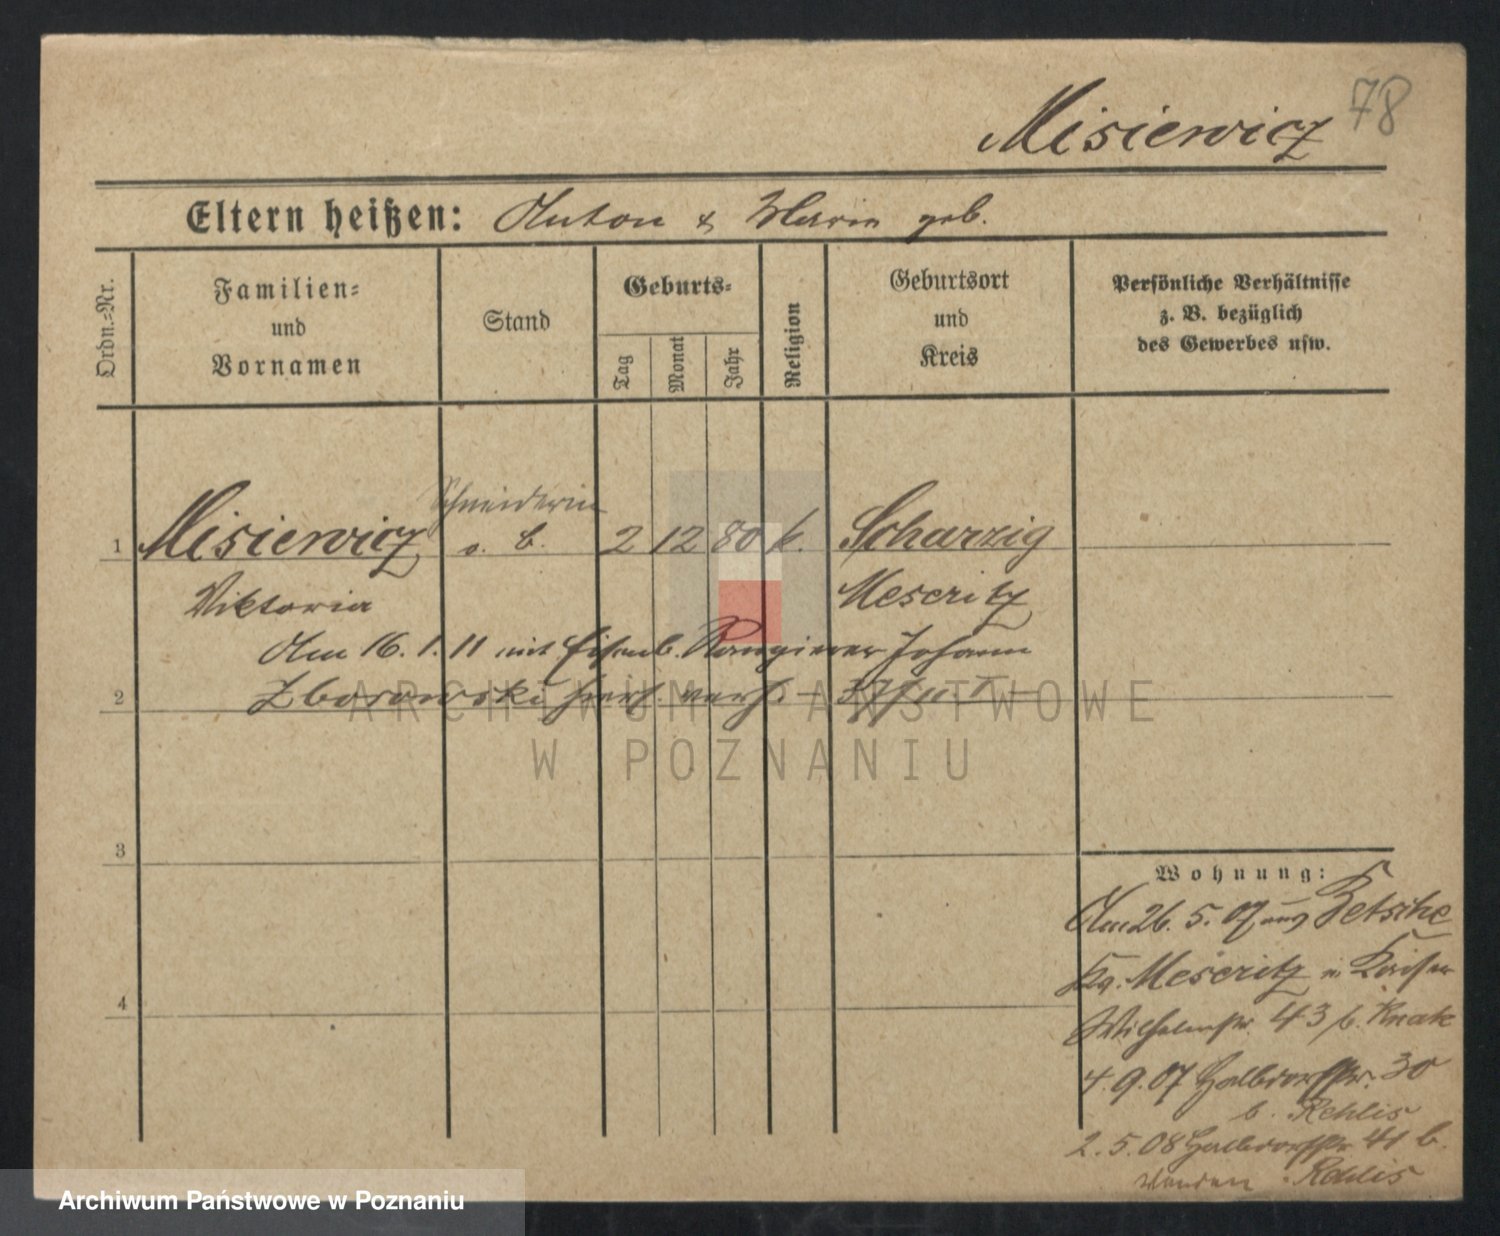 Misiewicz 78
Eltern heißen: Anton & Marie geb.
Ordn.-Nr.
Familien-
und
Vornamen
Stand
Geburts-
Tag
Monat
Jahr
Religion
Geburtsort
und
Kreis
Persönliche Verhältnisse
z. B. bezüglich
des Gewerbes usw.
Schneiderin
1 Misiewicz o. b. 2 12 80 k. Scharzig
Viktoria Meseritz
Am 16. 1. 11 mit Eisenb. Rangierer Johann
2 Zborowski hier verh.
3
4
Wohnung:
Am 26. 5. 07 aus Betsche
Kr. Meseritz n. Kaiser
Wilhelmstr. 43 b. Knak
4. 9. 07 Halbdorfstr. 30
b. Rehlis
2. 5. 08 Halbdorfstr. 41 b.
Rehlis
ARCHIWUM PAŃSTWOWE
W POZNANIU
Archiwum Państwowe w Poznaniu